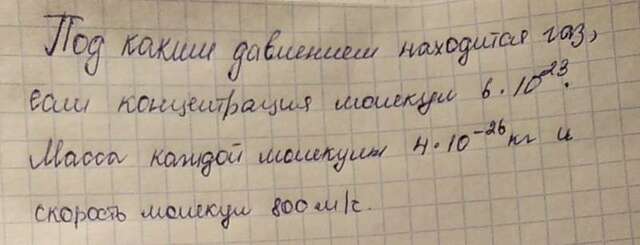 Под каким давлением находится газ,
если концентрация молекул 6·10⁻²³.
Масса каждой молекулы 4·10⁻²⁶ кг и
скорость молекул 800 м/с.